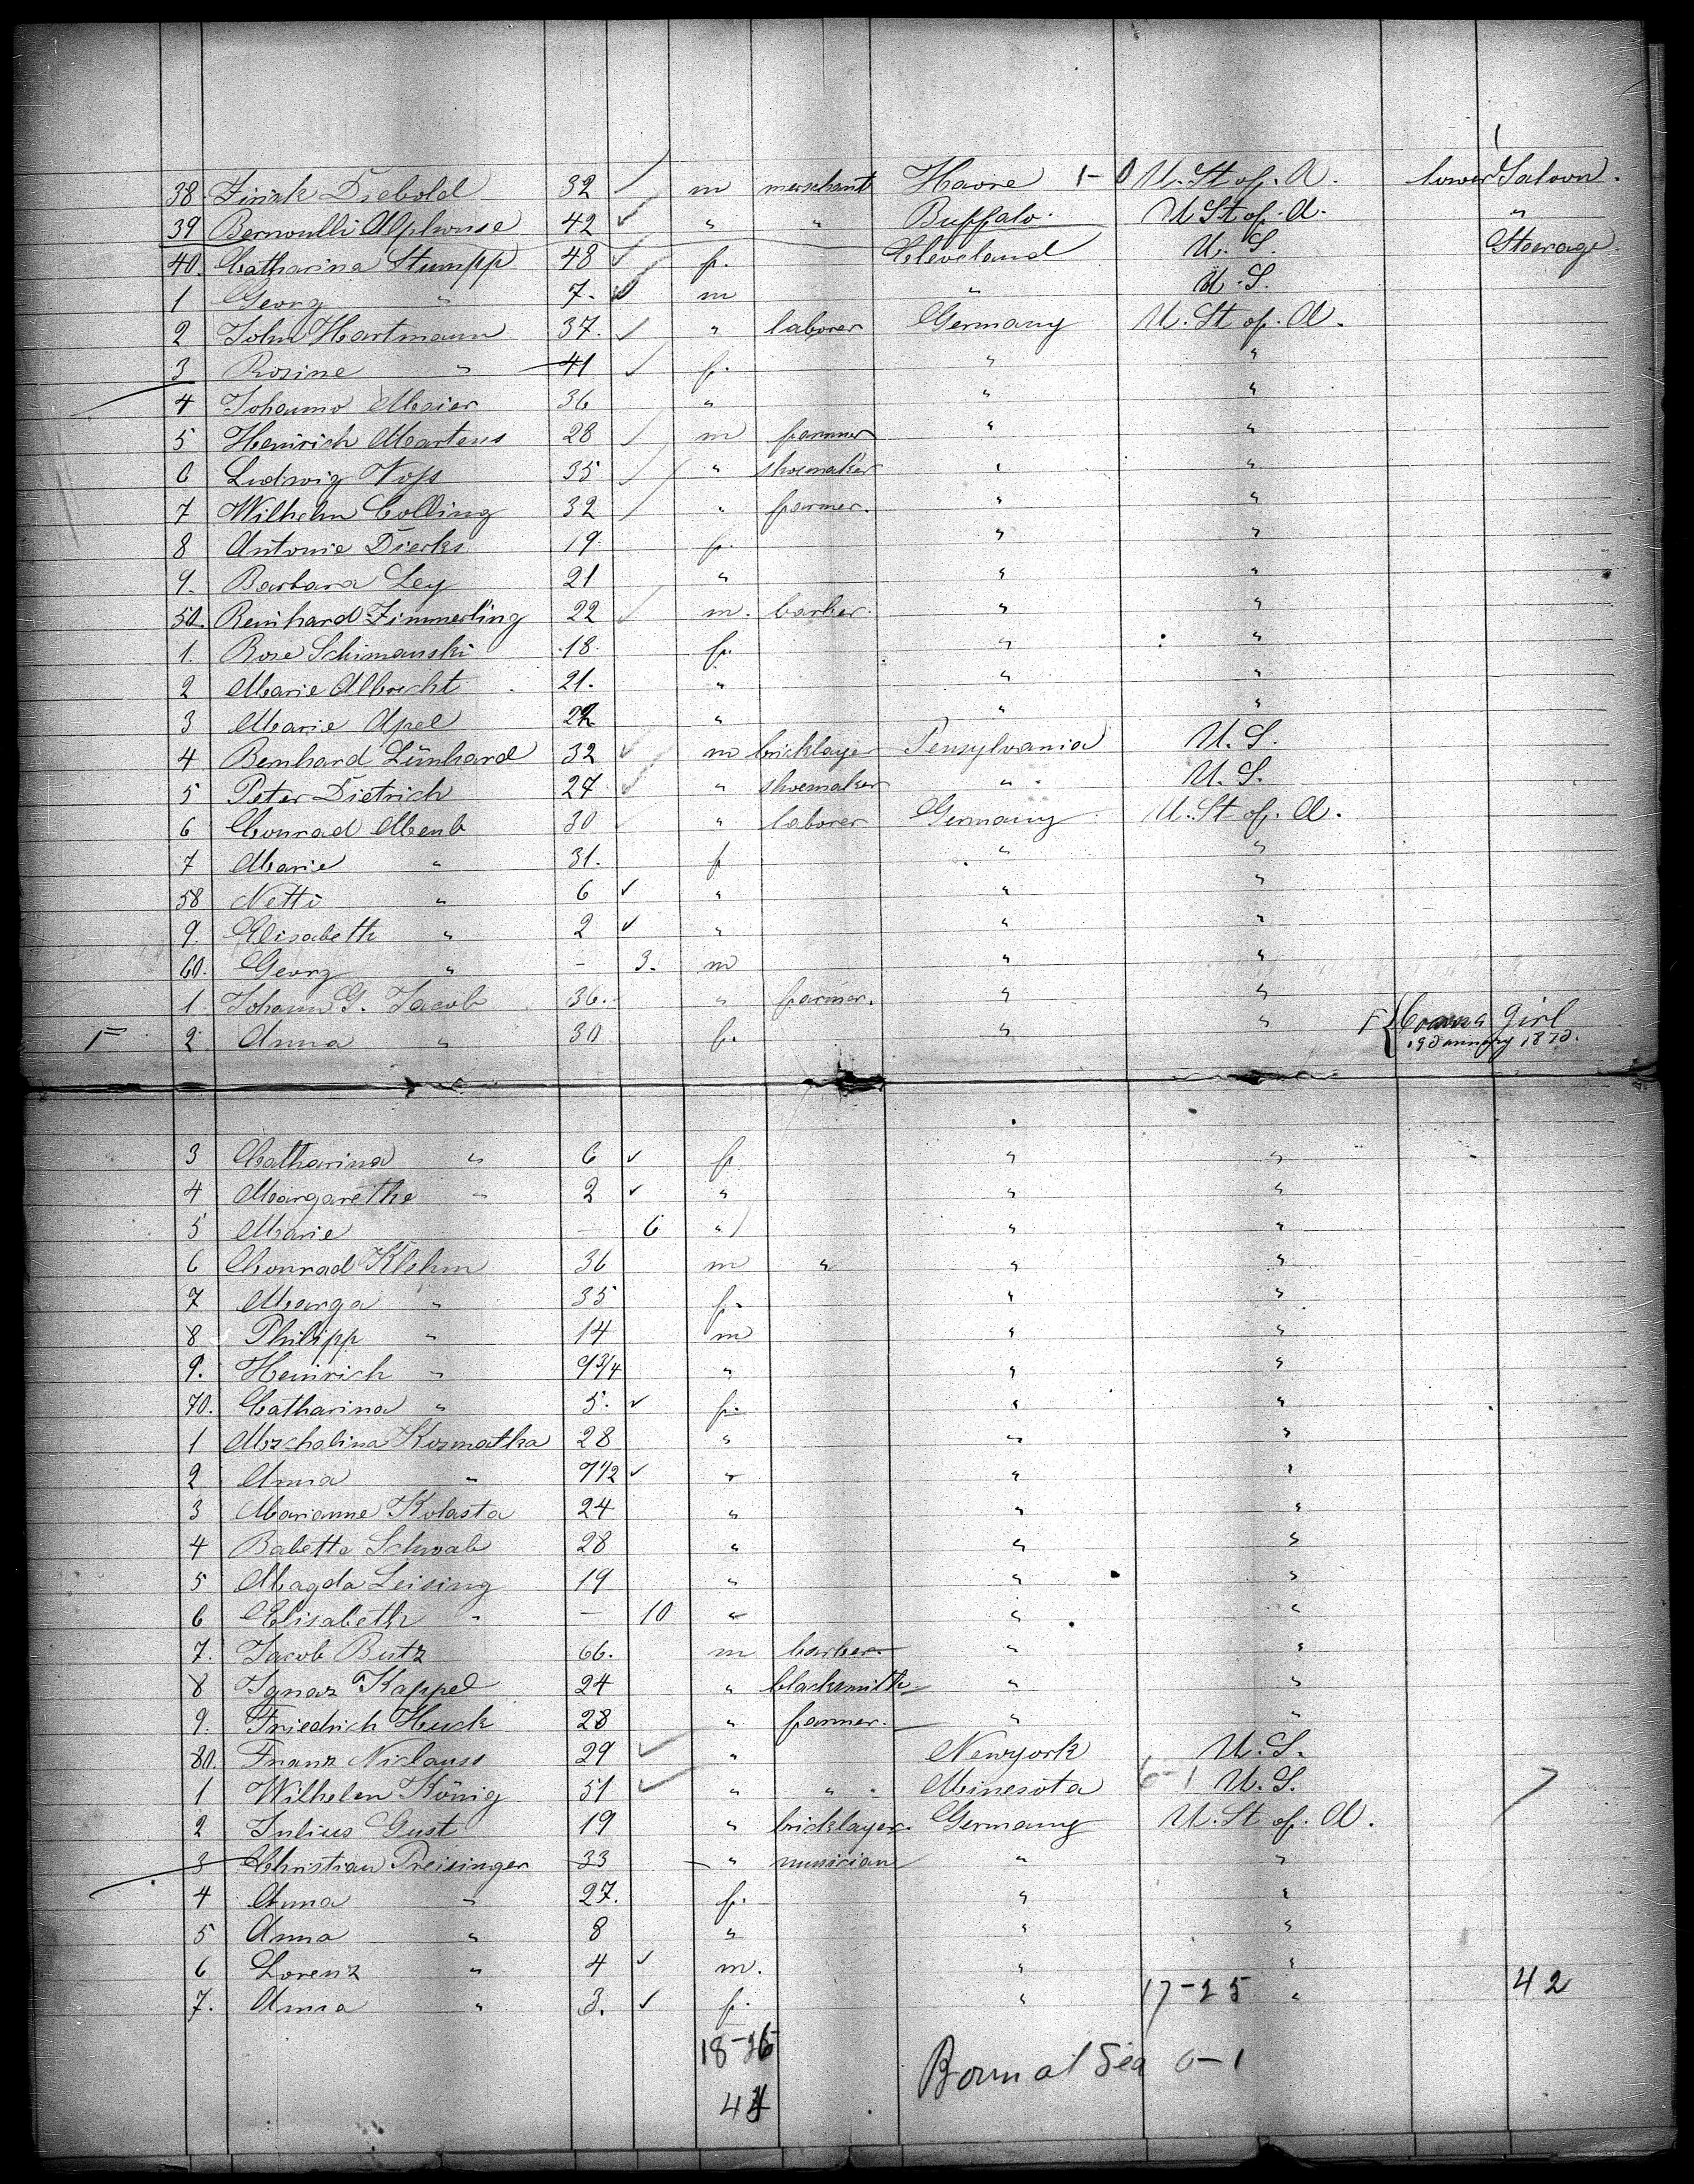 1
38. Frink Diebold 32 m merschant Havre 1-0 U. St of. A. lower Saloon.
39 Bernoulli Alphonse 42 " " Buffalo. U St of. A. "
40. Catharina Stumpp 48 f. Cleveland U. S. Steerage
1 Georg " 7. m " U. S.
2 John Hartmann 37. " laborer Germany U. St of. A.
3 Rosine " 41 f. " "
4 Johanno Maier 36 " " "
5 Heinrich Martens 28 m farmer " "
6 Ludwig Vofs 35 " shoemaker " "
7 Wilhelm Colling 32 " farmer. " "
8 Antonie Dierks 19. f. " "
9. Barbara Ley 21 " " "
50. Reinhard Zimmerling 22 m. barber. " "
1. Rose Schimanski 18. f. " "
2 Marie Albrecht 21. " " "
3 Marie Apel 22 " " "
4 Bernhard Lünhard 32 m bricklayer Pensylvania U. S.
5 Peter Dietrich 27 " shoemaker " U. S.
6 Conrad Menb 30 " laborer Germany U. St of. A.
7 Marie " 31. f " "
58 Netti " 6 " " "
9. Elisabeth " 2 " " "
60. Georg " - 3. m " "
1. Johann G. Jacob 36. " farmer. " "
F 2. Anna " 30 f. " " F { Girl
19 January 1870.
3 Catharina " 6 f " "
4 Margarethe " 2 " " "
5 Marie - 6 " " "
6 Conrad Klehm 36 m " " "
7 Marga " 35 f. " "
8 Philipp " 14 m " "
9. Heinrich " 9 3/4 " " "
70. Catharina " 5. f. " "
1 Mschalina Kosmatka 28 " " "
2 Anna " 7 1/2 " " "
3 Marianne Kolasta 24 " " "
4 Babette Schwab 28 " " "
5 Magda Leising 19 " " "
6 Elisabeth " - 10 " " "
7. Jacob Butz 66. m barber " "
8 Ignaz Kappel 24 " blacksmith " "
9. Friedrich Huck 28 " farmer. " "
80. Franz Niclauss 29 " Newyork U. S.
1 Wilhelm König 51 " " Minesota 6-1 U. S.
2 Julius Gust 19 " bricklayer. Germany U. St of. A.
3 Christian Preisinger 33 " musician " "
4 Anna " 27. f. " "
5 Anna " 8 " " "
6 Lorenz " 4 m. " "
7. Anna " 3. f. " 17-25 " 42
18-26
Born at Sea 0-1
44